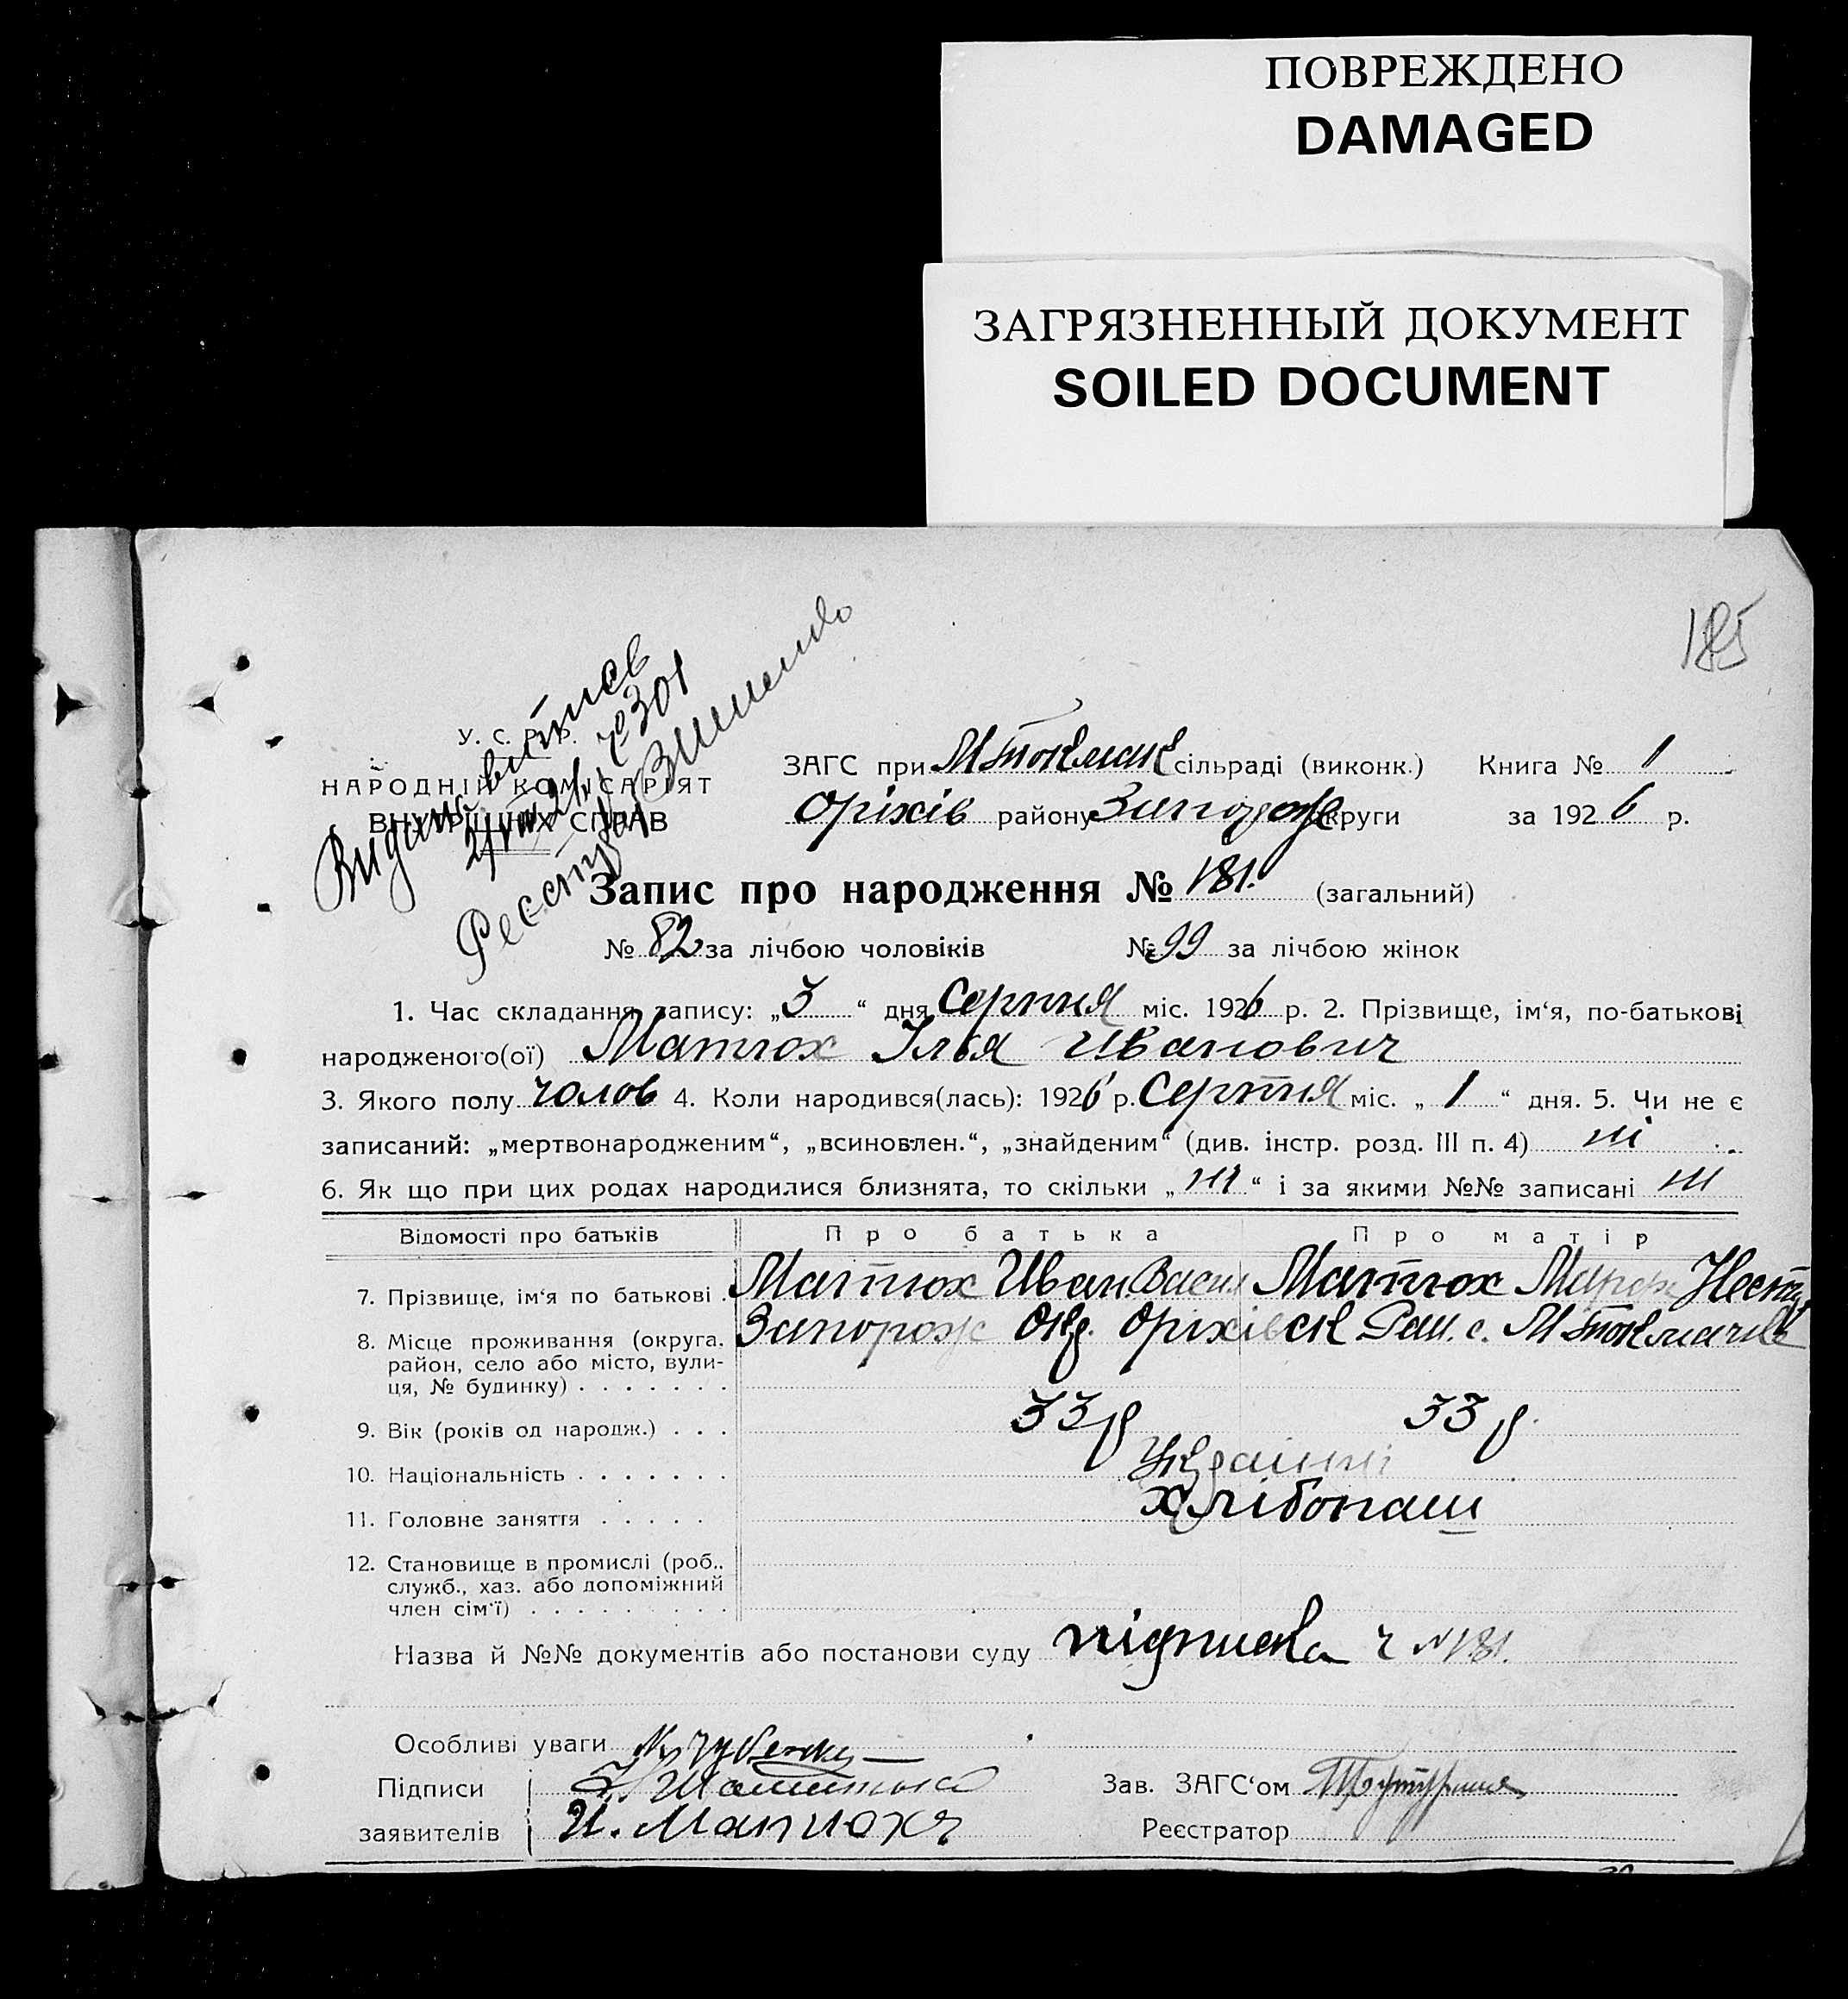 ПОВРЕЖДЕНО
DAMAGED
ЗАГРЯЗНЕННЫЙ ДОКУМЕНТ
SOILED DOCUMENT
185
У. С. Р. Р.
НАРОДНІЙ КОМІСАРІЯТ
ВНУТРІШНІХ СПРАВ
Видань витяг
ЗАГС при М Токмак сільраді (виконк.) Книга № 1
Оріхів району Запорож округи за 1926 р.
Запис про народження № 181. (загальний)
№ 82 за лічбою чоловіків № 99 за лічбою жінок
1. Час складання запису: „3“ дня серпня міс. 1926 р. 2. Прізвище, ім‘я, по-батькові
народженого(ої) Матюх Ілья Иванович
3. Якого полу чолов 4. Коли народився(лась): 1926 р. серпня міс. „1“ дня. 5. Чи не є
записаний: „мертвонародженим“, „всиновлен.“, „знайденим“ (див. інстр. розд. III п. 4) ні
6. Як що при цих родах народилися близнята, то скільки „ні“ і за якими №№ записані ні
Відомості про батьків Про батька Про матір
7. Прізвище, ім‘я по батькові . Матюх Иван Васил Матюх Марф Нест
8. Місце проживання (округа, Запорож Окр. Оріхівск Рай. с. М Токмачк
район, село або місто, вули-
ця, № будинку) . . . . . . .
9. Вік (років од народж.) . . . 33 р 33 р.
10. Національність . . . . . . . Украінці
11. Головне заняття . . . . . хлібопаш
12. Становище в промислі (роб.,
служб., хаз. або допоміжний
член сім‘ї) . . . . . . . . .
Назва й №№ документів або постанови суду підписка ч № 181.
Особливі уваги
Підписи
Зав. ЗАГС‘ом
заявителів И. Матюха
Реєстратор